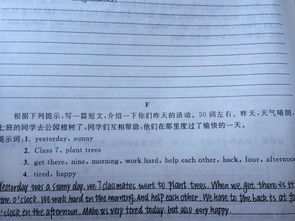 F
根据下列提示,写一篇短文,介绍一下你们昨天的活动。50 词左右。昨天,天气晴朗,
七班的同学去公园植树了,同学们互相帮助,他们在那里度过了愉快的一天。
提示词:1. yesterday, sunny
2. Class 7, plant trees
3. get there, nine, morning, work hard, help each other, back, four, afternoon
4. tired, happy
Yesterday was a sunny day. We 7 classmates went to plant trees. When we get there is it
o'clock. We work hard in the morning. And help each other. We home to the back is at
o'clock in the afternoon. Make us very tired today but also very happy.